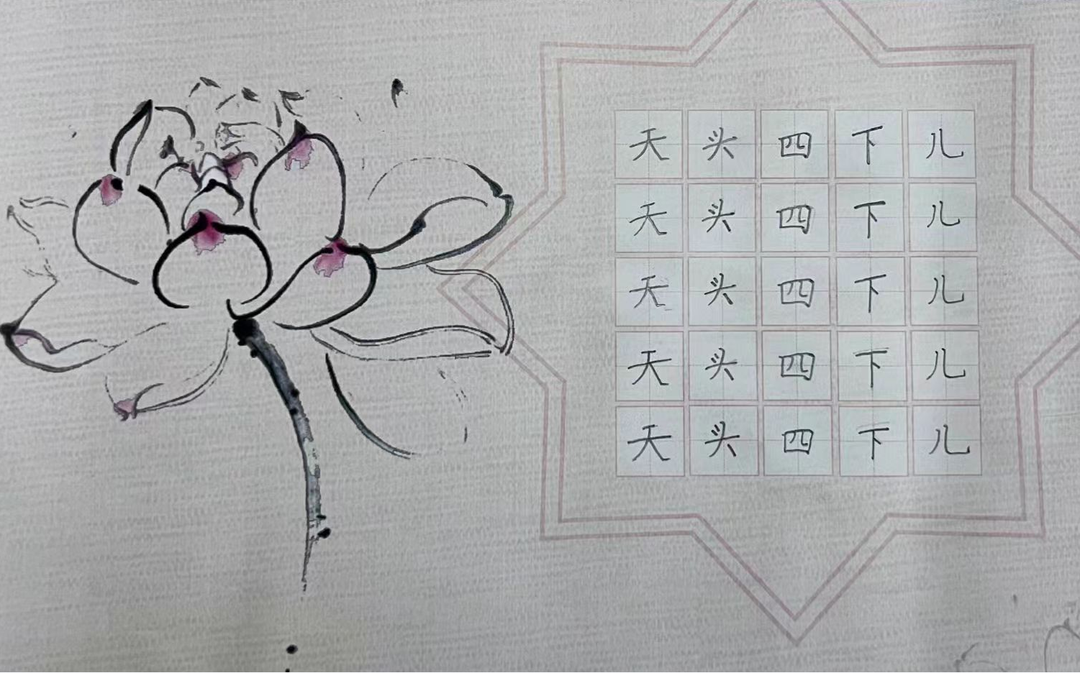 天头四下儿
天头四下儿
天头四下儿
天头四下儿
天头四下儿